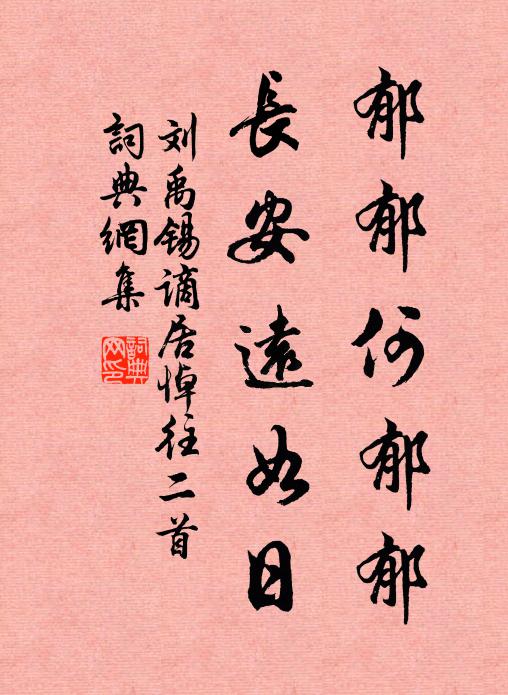 郁郁何郁郁
長安遠如日
刘禹锡謫居悼往二首
詞典網集
詞典網印